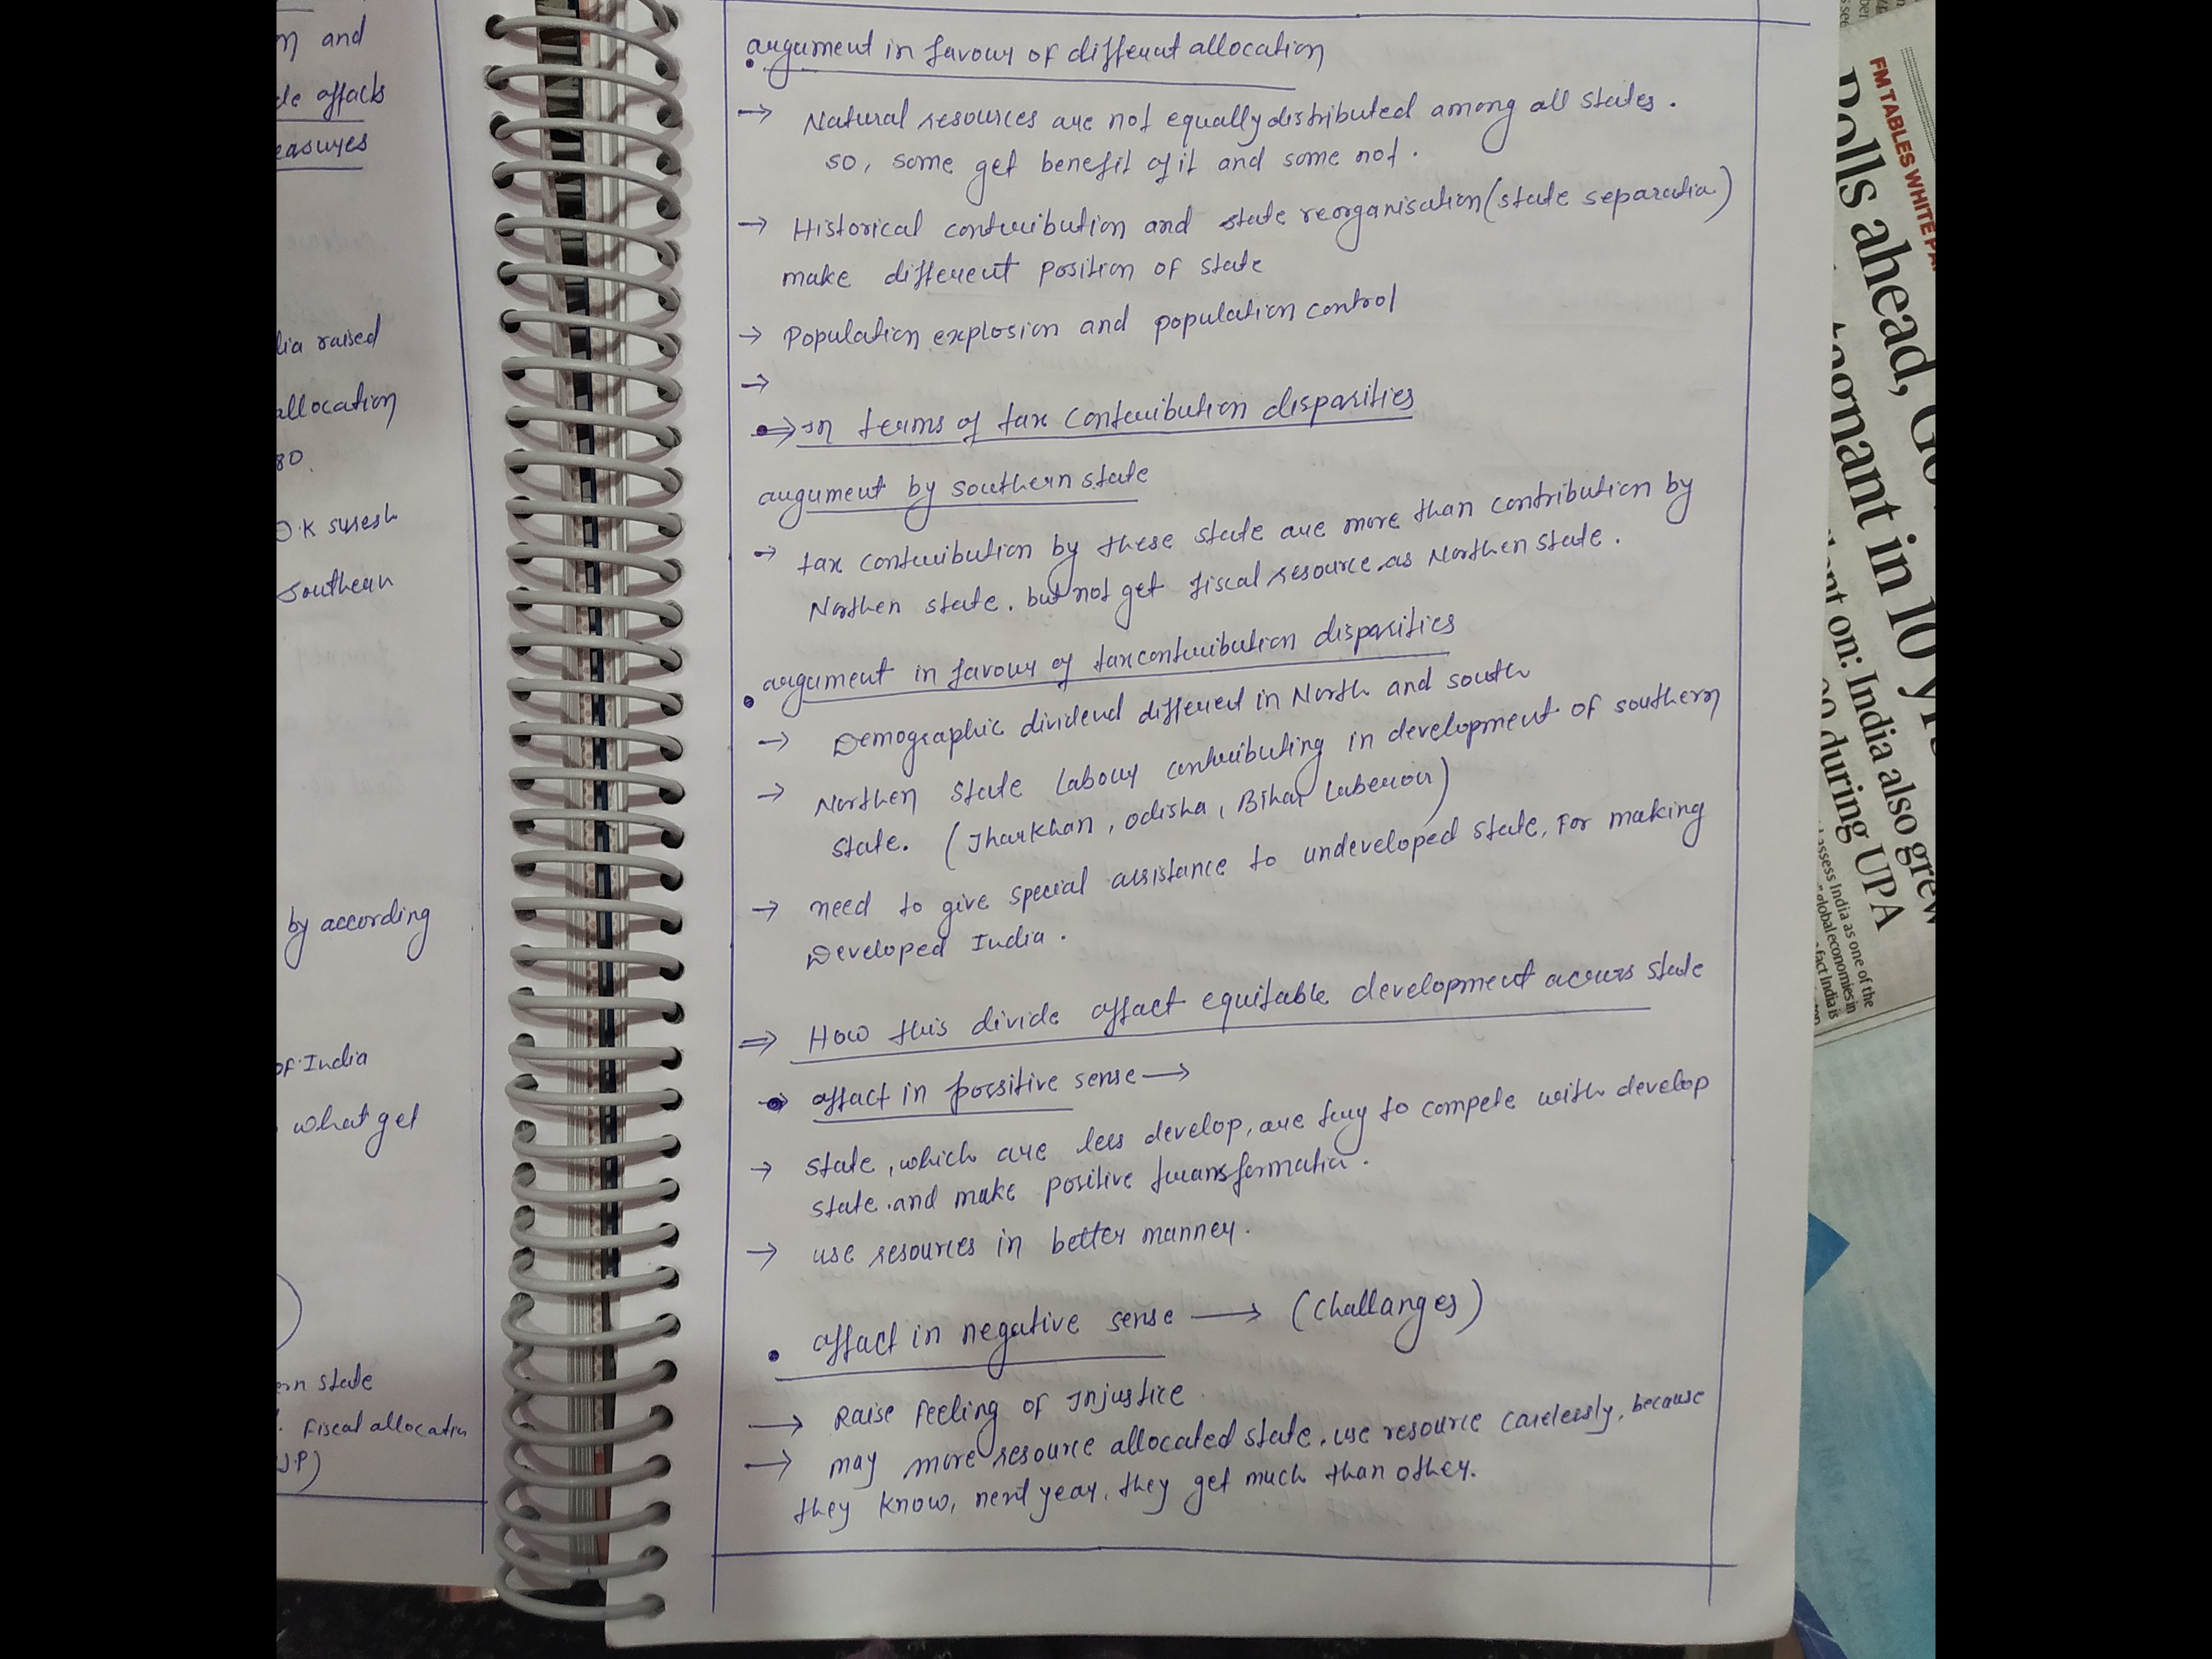 and
affacts
easuyes
lia raised
allocation
80.
D.K suresh
southern
by according
of India
what get
ern state
Fiscal allocation
U.P)
argument in favour of different allocation
→ Natural resources are not equally distributed among all states.
so, some get benefit of it and some not.
→ Historical contribution and state reorganisation (state separation)
make different position of state
→ Population explosion and population control
→
⇒ In terms of tax contribution disparities
argument by southern state
→ tax contribution by these state are more than contribution by
Northen state. but not get fiscal resource as Northen state.
• argument in favour of tax contribution disparities
→ Demographic dividend different in North and south
→ Northen state Labour contributing in development of southern
state. (Jharkhan, odisha, Bihar Laberour)
→ need to give special assistance to undeveloped state, For making
Developed India.
⇒ How this divide affact equitable development across state
• affact in possitive sense →
→ state, which are less develop, are tray to compete with develop
state. and make positive transformation.
→ use resources in better manner.
• affact in negative sense → (challanges)
→ Raise feeling of Injustice
→ may more resource allocated state. use resource carelessly, because
they know, next year, they get much than other.
FM TABLES WHITE PA
Polls ahead, Go
tagnant in 10 y
nt on: India also grew
during UPA
assess India as one of the
global economies in
fact India is